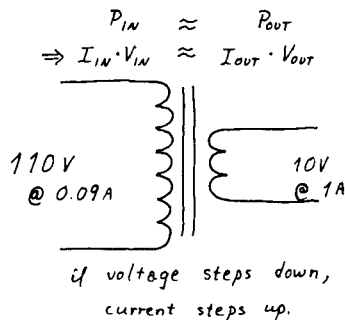 P_IN ≈ P_OUT
⇒ I_IN · V_IN ≈ I_OUT · V_OUT
110V
@ 0.09A
10V
@ 1A
if voltage steps down,
current steps up.